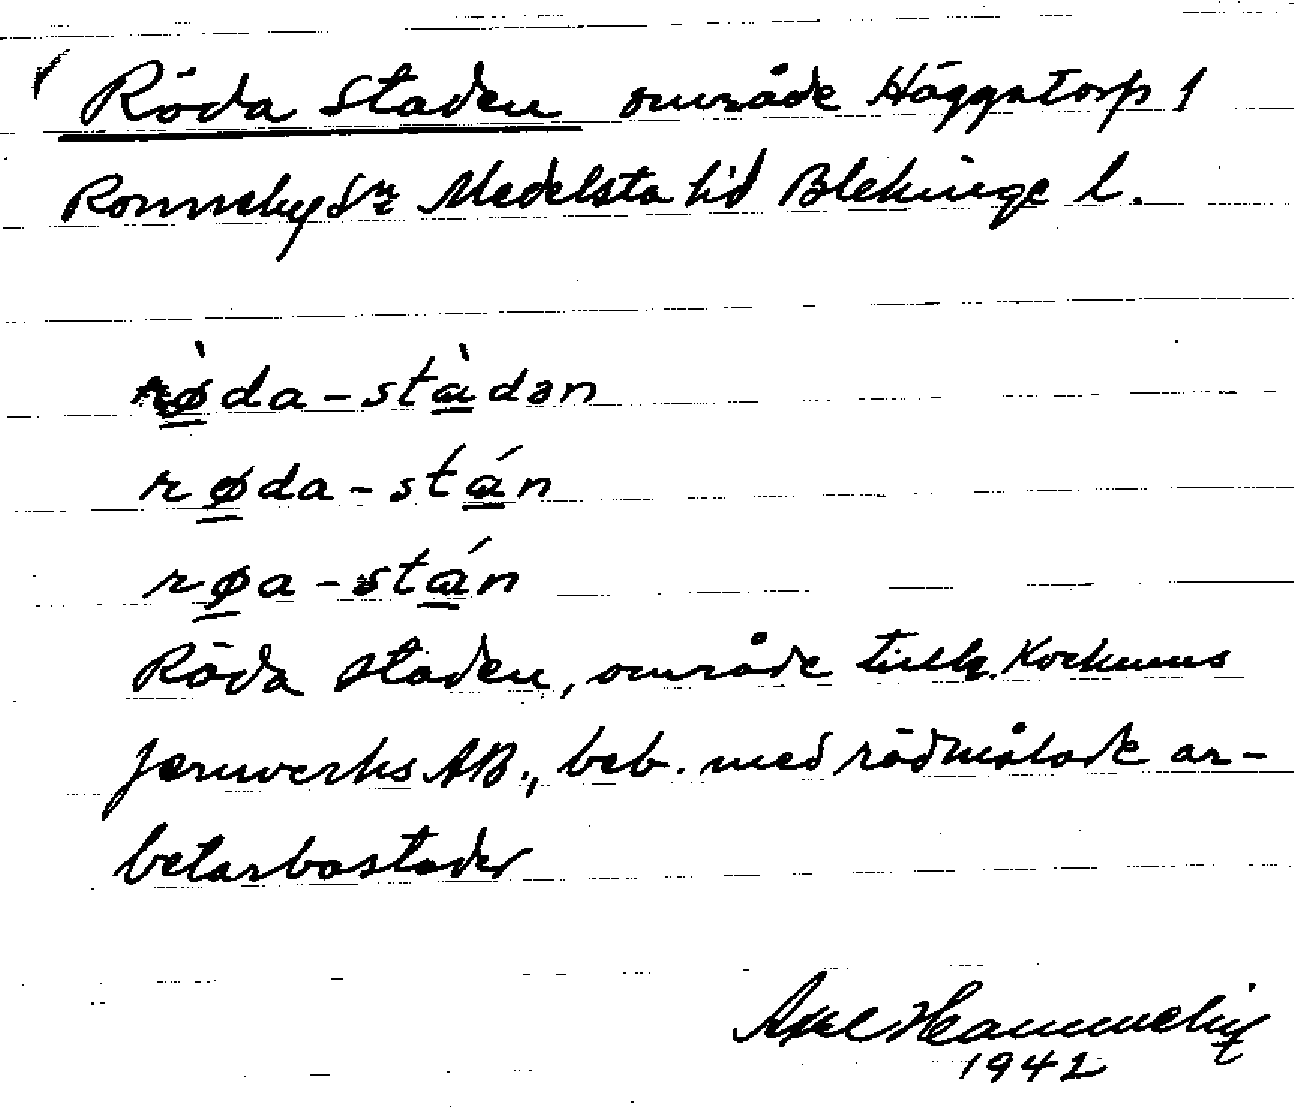 Röda Staden område Häggatorp 1
Ronneby sn Medelsta hd Blekinge l.
rø̀da-stàdən
røda-stán
røa-stán
Röda staden, område tillh. Kockums
Jernverks AB., beb. med rödmålade ar-
betarbostäder
Axel
1942